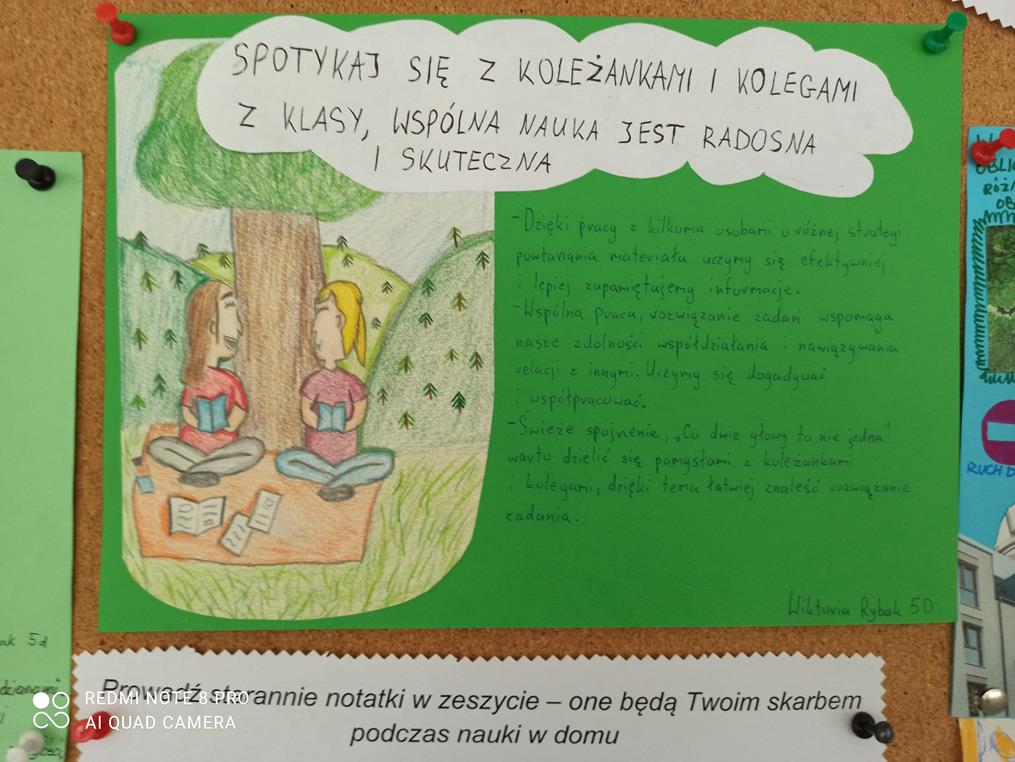 SPOTYKAJ SIĘ Z KOLEŻANKAMI I KOLEGAMI
Z KLASY, WSPÓLNA NAUKA JEST RADOSNA
I SKUTECZNA
-Dzięki pracy z kilkoma osobami o różnej strategi
powtarzania materiału uczymy się efektywniej
i lepiej zapamiętujemy informacje.
-Wspólna praca, rozwiązanie zadań wspomaga
nasze zdolności współdziałania i nawiązywania
relacji z innymi. Uczymy się dogadywać
i współpracować.
-Świeże spojrzenie, „Co dwie głowy to nie jedna"
warto dzielić się pomysłami z koleżankami
i kolegami, dzięki temu łatwiej znaleść rozwiązanie
zadania.
Wiktoria Rybak 5D
Prowadź starannie notatki w zeszycie – one będą Twoim skarbem
podczas nauki w domu
ak 5d
RUCH D
REDMI NOTE 8 PRO
AI QUAD CAMERA